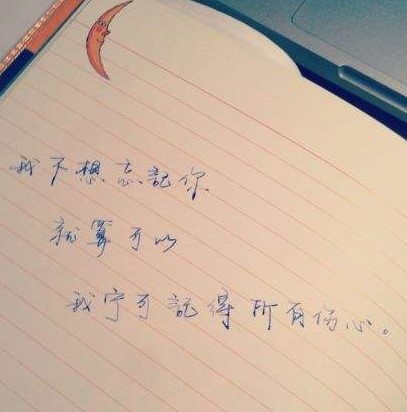 我不想忘記你
就算可以
我宁可記得所有伤心。